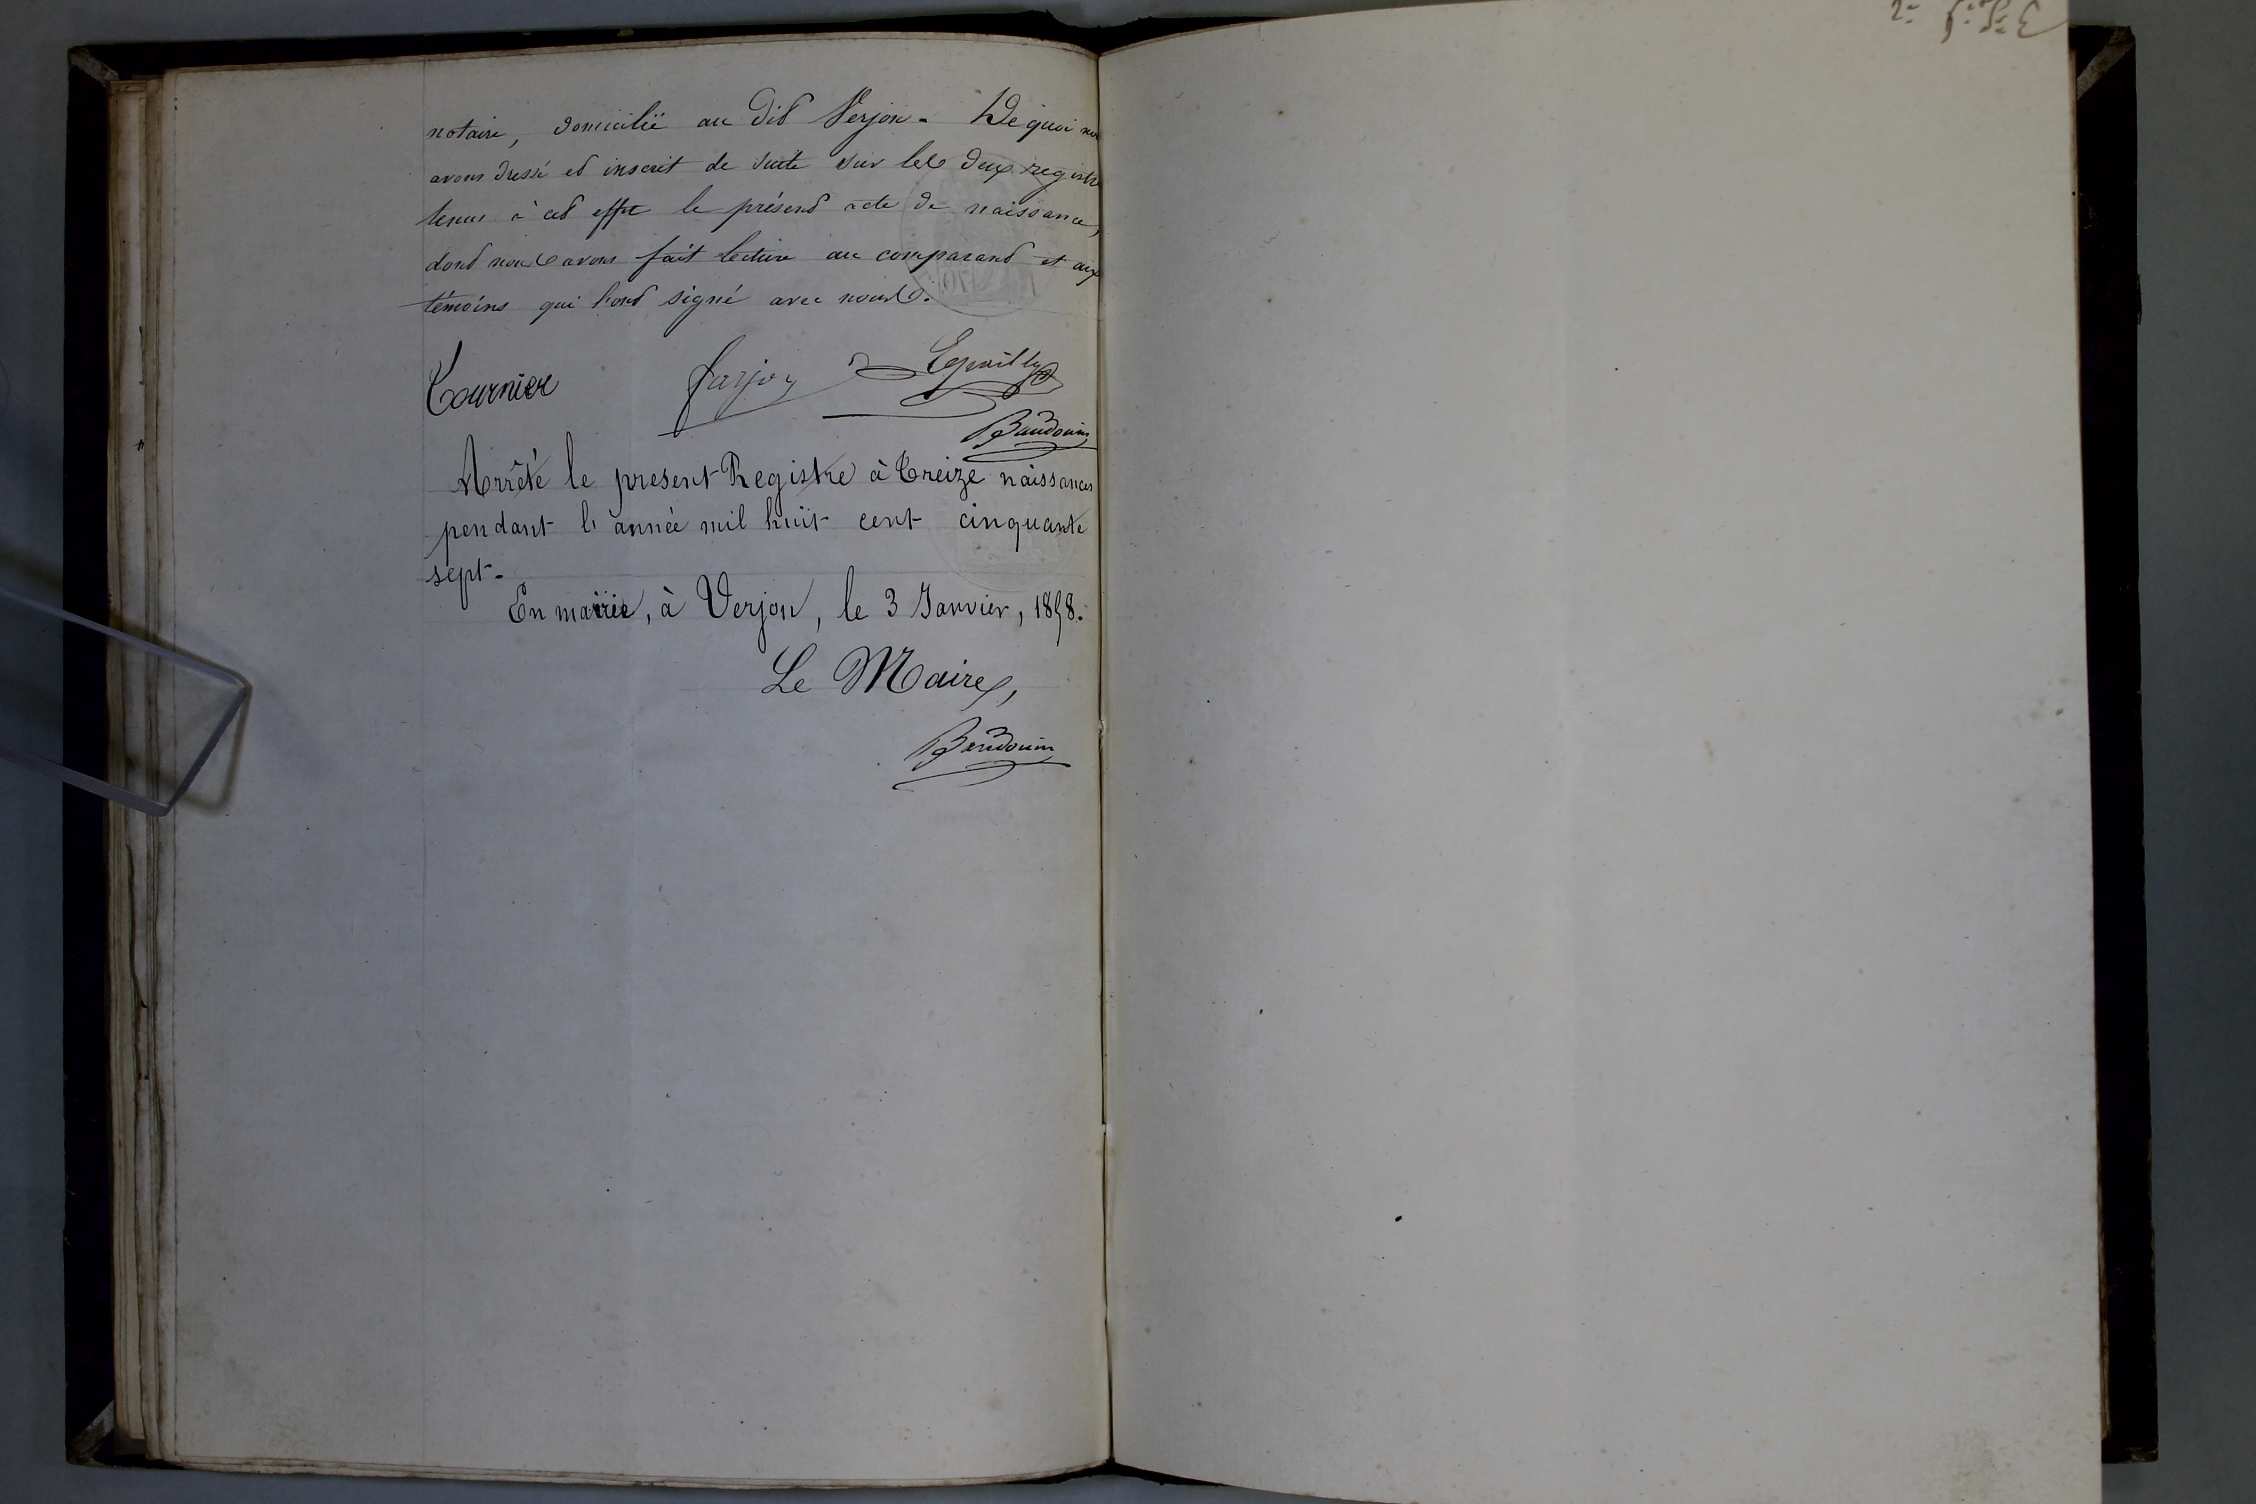 notaire, domicilié au dit Verjon. De quoi nou
avons dressé et inscrit de suite sur les deux registre
tenus à cet effet le présent acte de naissance,
dont nous avons fait lecture au comparant et aux
témoins qui l'ont signé avec nous.
Tournier Farjon
Baudouin
Arrêté le present Registre à treize naissances
pendant l'année mil huit cent cinquante
sept.
En mairie, à Verjon, le 3 Janvier, 1858.
Le Maire,
Baudouin